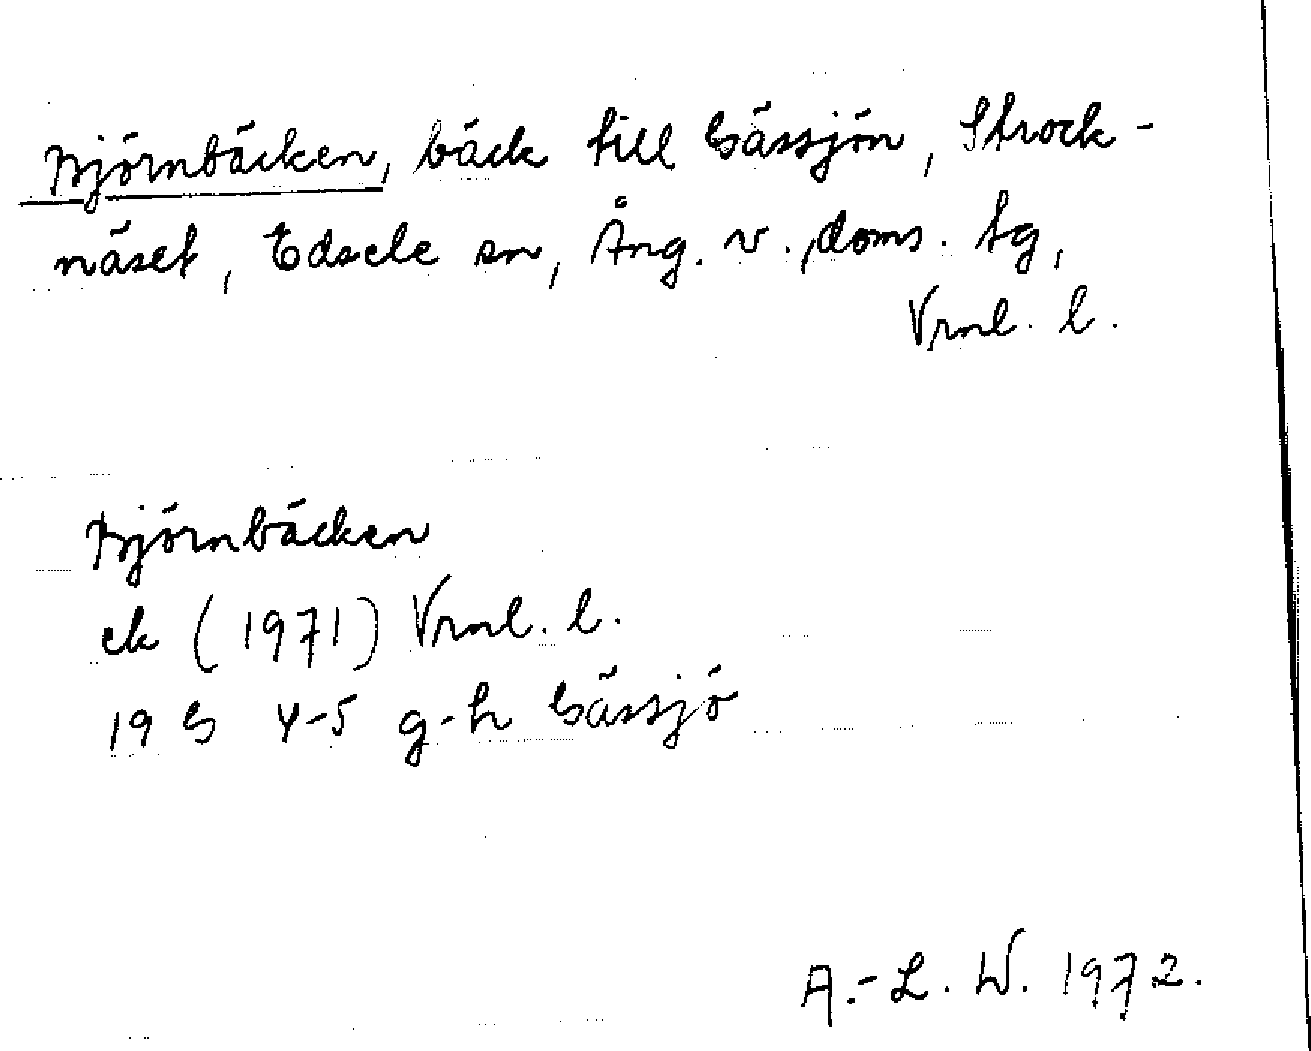 Björnbäcken, bäck till Gässjön, Strock-
näset, Edsele sn, Ång. v. doms. tg,
Vrml. l.
Björnbäcken
ek (1971) Vrml. l.
19 G 4-5 g-h Gässjö
A.-L. W. 1972.